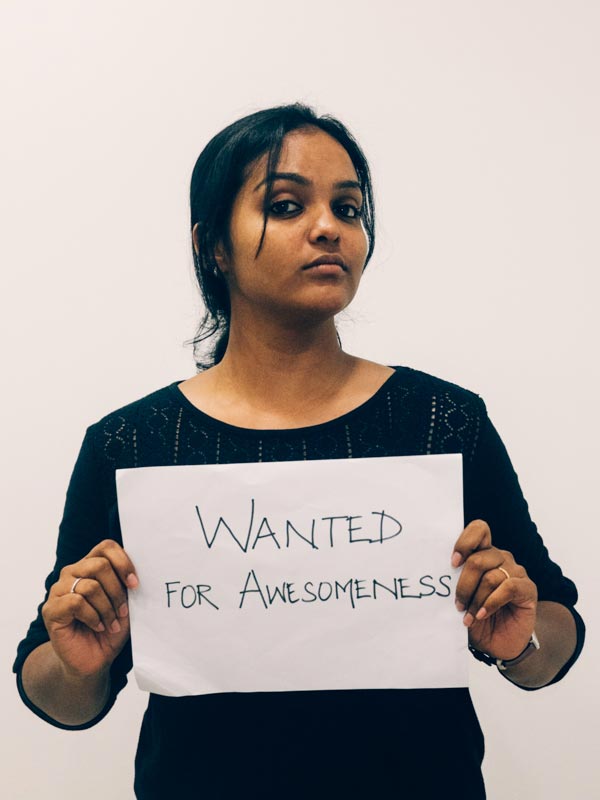 WANTED
FOR AWESOMENESS